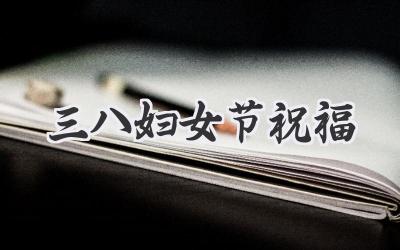 三八妇女节祝福